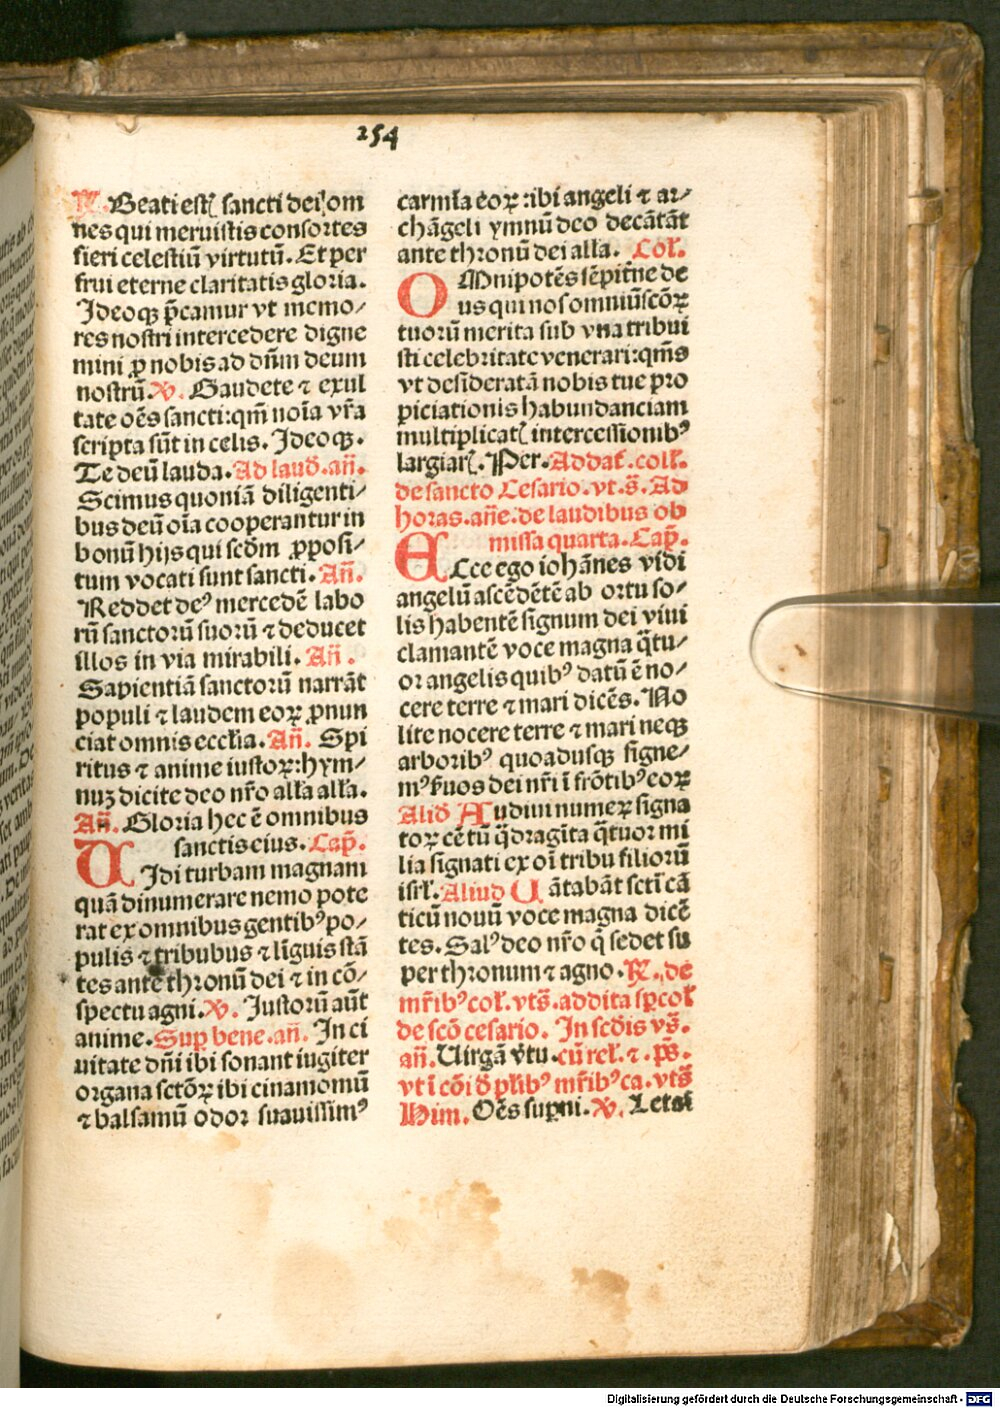 254
R̃. Beati estꝭ sancti dei om
nes qui meruistis consortes
fieri celestiū virtutū. Et per
frui eterne claritatis gloria.
Ideoqꝫ p̄camur vt memo/
res nostri intercedere digne
mini ꝓ nobis ad dn̄m deum
nostrū. ꝟ. Gaudete ⁊ exul
tate oēs sancti: qm̄ noīa vr̄a
scripta sūt in celis. Ideoqꝫ.
Te deū lauda. Ad laud̄. añ.
Scimus quoniā diligenti/
bus deū oīa cooperantur in
bonū hijs qui scd̄m ꝓposi/
tum vocati sunt sancti. Añ.
Reddet deꝰ mercedē labo
rū sanctorū suorū ⁊ deducet
illos in via mirabili. Añ.
Sapientiā sanctorū narrāt
populi ⁊ laudem eoꝝ ꝓnun
ciat omnis eccl̄ia. Añ. Spi
ritus ⁊ anime iustoꝝ: hym/
nuꝫ dicite deo nr̄o all̄a all̄a.
Añ. Gloria hec ē omnibus
sanctis eius. Cap̄.
UIdi turbam magnam
quā dinumerare nemo pote
rat ex omnibus gentibꝰ po/
pulis ⁊ tribubus ⁊ līguis stā
tes ante thronū dei ⁊ in cō/
spectu agni. ꝟ. Iustorū aūt
anime. Sup bene. añ. In ci
uitate dn̄i ibi sonant iugiter
organa sctōꝝ ibi cinamomū
⁊ balsamū odor suauissimꝰ
carmīa eoꝝ: ibi angeli ⁊ ar/
chāgeli ymnū deo decātāt
ante thronū dei all̄a. Col̄.
OMnipotēs sēpit̄ne de
us qui nos omniū scōꝝ
tuorū merita sub vna tribui
sti celebritate venerari: qm̄s
vt desideratā nobis tue pro
piciationis habundanciam
multiplicatꝭ intercessionibꝰ
largiarꝭ. Per. Addat̄. coll̄.
de sancto Cesario. vt. s̄. Ad
horas. añe. de laudibus ob
missa quarta. Cap̄.
ECce ego iohānes vidi
angelū ascēdētē ab ortu so/
lis habentē signum dei viui
clamantē voce magna q̄tu/
or angelis quibꝰ datū ē no/
cere terre ⁊ mari dicēs. No
lite nocere terre ⁊ mari neqꝫ
arboribꝰ quoadusqꝫ signe/
mꝰ s̄uos dei nr̄i ī frōtibꝰ eoꝝ
Aliud̄ Audiui numeꝝ signa
toꝝ cētū q̄dragīta q̄tuor mi
lia signati ex oī tribu filiorū
isrl̄. Aliud Cātabāt sctī cā
ticū nouū voce magna dicē
tes. Salꝰ deo nr̄o q̄ sedet su
per thronum ⁊ agno. R̃. de
mr̄ibꝰ col̄. vts̄. addita sp̄col̄
de scō cesario. In scd̄is vs̄.
añ. Uirgā v̄tu. cū rel̄. ⁊. ps̄.
vt ī cōi d̄ pl̄ibꝰ mr̄ibꝰ ca. vts̄
Him. Oēs suꝑni. ꝟ. Letai
Digitalisierung gefördert durch die Deutsche Forschungsgemeinschaft - DFG